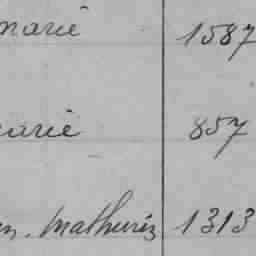 marie 1587
marie 857
en. Mathurin 1313